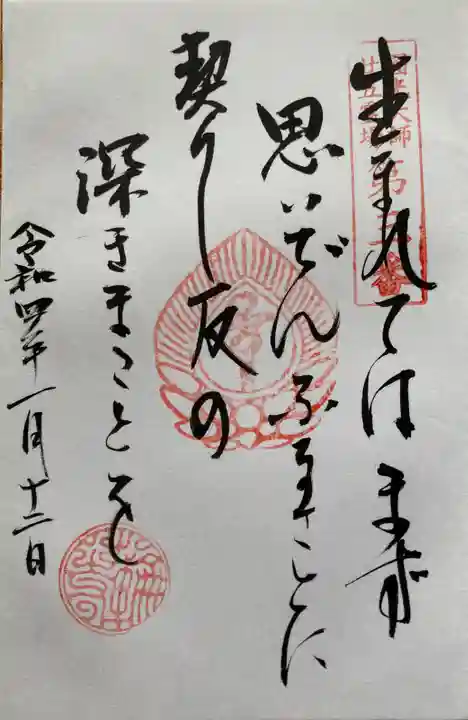 生まれてはまず
思いでんふるさとに
契りし友の
深きまことを
令和四年一月十二日
大師
廿五霊場